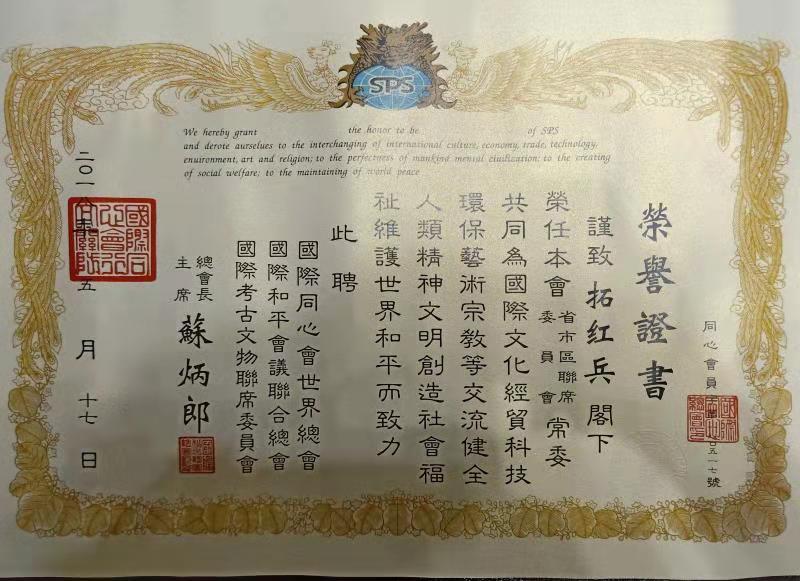 SPS
We hereby grant the honor to be of SPS
and derote aurselues to the interchanging of international culture, economy, trade, technology,
enuironment, art and religion; to the perfectness of mankind mental ciuilization; to the creating
of social welfare; to the maintaining of world peace
同心會員 五一七號
榮譽證書
謹致 拓红兵 閣下
榮任本會 省市區聯席 委員會 常委
共同為國際文化經貿科技
環保藝術宗教等交流健全
人類精神文明創造社會福
祉維護世界和平而致力
此聘
國際同心會世界總會
國際和平會議聯合總會
國際考古文物聯席委員會
總會長
主席
蘇炳郎
二〇一 五月十七日